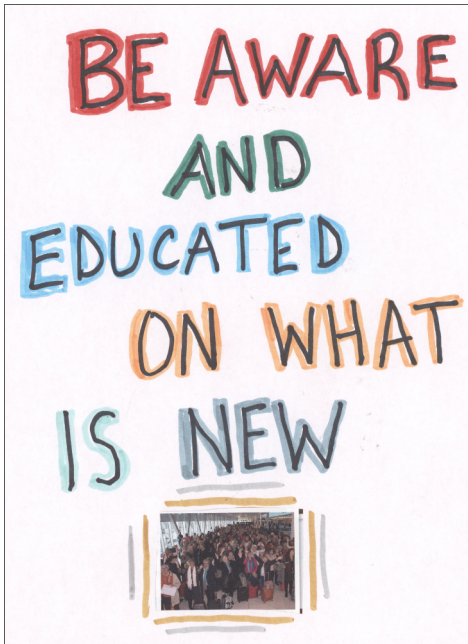 BE AWARE
AND
EDUCATED
ON WHAT
IS NEW